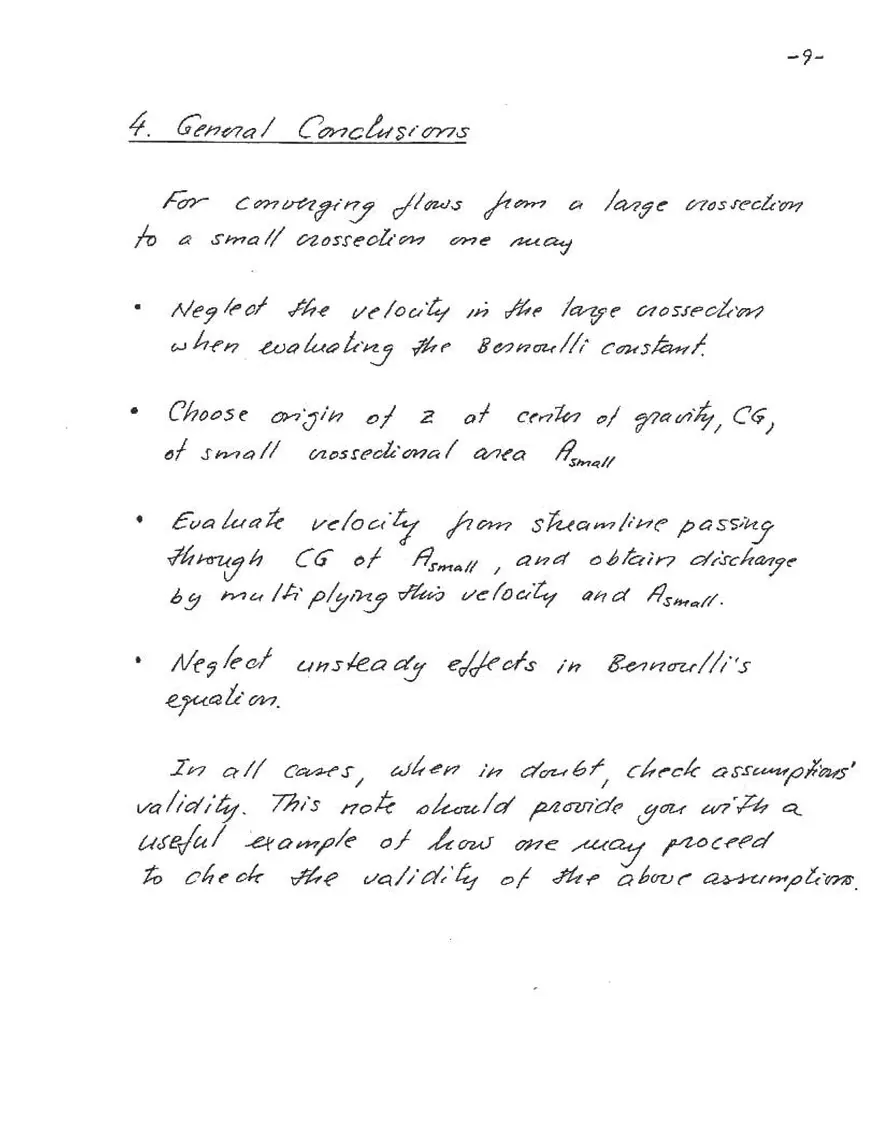 -9-
4. General Conclusions
For converging flows from a large crossection
to a small crossection one may
• Neglect the velocity in the large crossection
when evaluating the Bernoulli constant.
• Choose origin of z at center of gravity, CG,
of small crossectional area Asmall
• Evaluate velocity from streamline passing
through CG of Asmall, and obtain discharge
by multiplying this velocity and Asmall.
• Neglect unsteady effects in Bernoulli's
equation.
In all cases, when in doubt, check assumptions'
validity. This note should provide you with a
useful example of how one may proceed
to check the validity of the above assumptions.